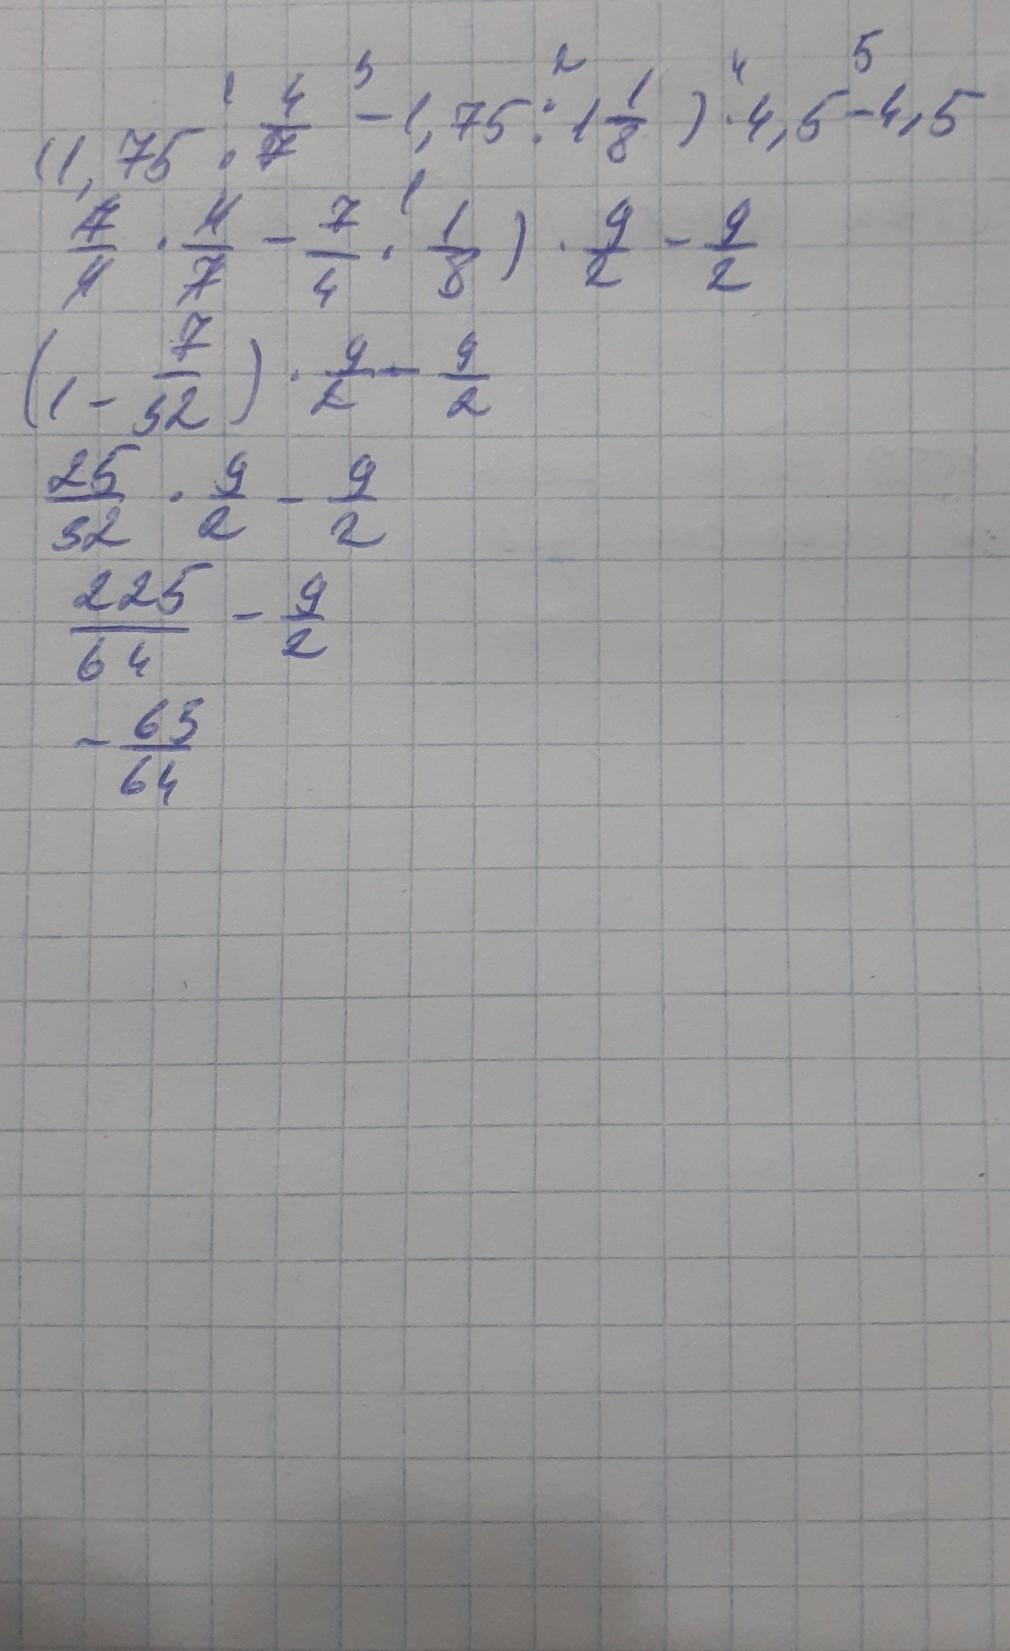 1 3 2 4 5
(1,75 · 4/7 - 1,75 : 1 1/8) · 4,5 - 4,5
7/4 · 4/7 - 7/4 · 1/8) · 9/2 - 9/2
(1 - 7/32) · 9/2 - 9/2
25/32 · 9/2 - 9/2
225/64 - 9/2
- 63/64